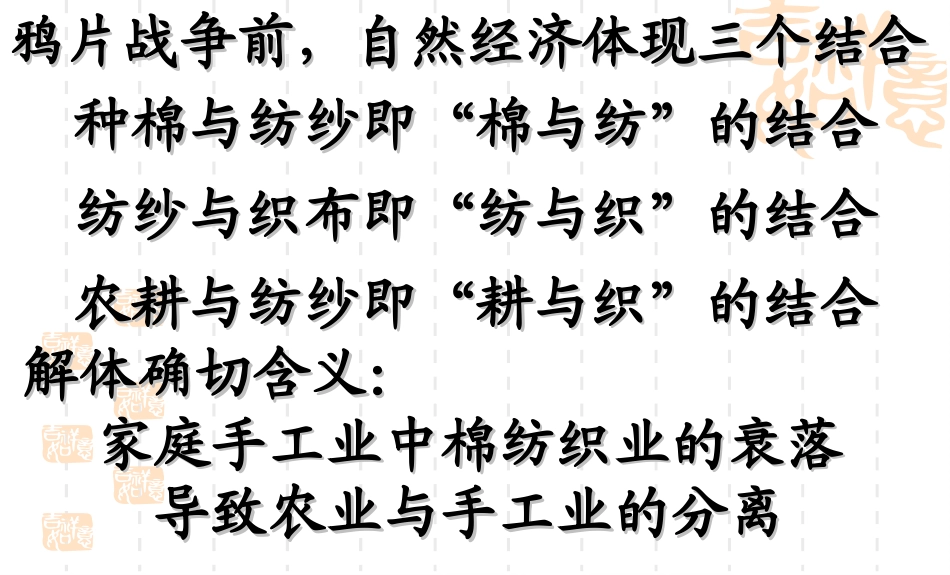 鸦片战争前，自然经济体现三个结合
种棉与纺纱即“棉与纺”的结合
纺纱与织布即“纺与织”的结合
农耕与纺纱即“耕与织”的结合
解体确切含义：
家庭手工业中棉纺织业的衰落
导致农业与手工业的分离